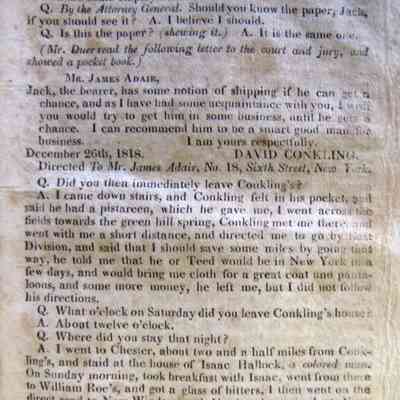 Q. By the Attorney General. Should you know the paper, Jack,
if you should see it? A. I believe I should.
Q. Is this the paper? (shewing it.) A. It is the same one.
(Mr. Duer read the following letter to the court and jury, and
showed a pocket book.)
Mr. James Adair,
Jack, the bearer, has some notion of shipping if he can get a
chance, and as I have had some acquaintance with you, I wish
you would try to get him in some business, until he gets a
chance. I can recommend him to be a smart good man for
business. I am yours respectfully.
December 26th, 1818. DAVID CONKLING.
Directed To Mr. James Adair, No. 18, Sixth Street, New York.
Q. Did you then immediately leave Conkling's?
A. I came down stairs, and Conkling felt in his pocket, and
said he had a pistareen, which he gave me, I went across the
fields towards the green hill spring, Conkling met me there and
went with me a short distance, and directed me to go by East
Division, and said that I should save some miles by going that
way, he told me that he or Teed would be in New York in a
few days, and would bring me cloth for a great coat and panta-
loons, and some more money, he left me, but I did not follow
his directions.
Q. What o'clock on Saturday did you leave Conkling's house?
A. About twelve o'clock.
Q. Where did you stay that night?
A. I went to Chester, about two and a half miles from Conk-
ling's, and staid at the house of Isaac Hallock, a colored man.
On Sunday morning, took breakfast with Isaac, went from there
to William Roe's, and got a glass of bitters, I then went on the